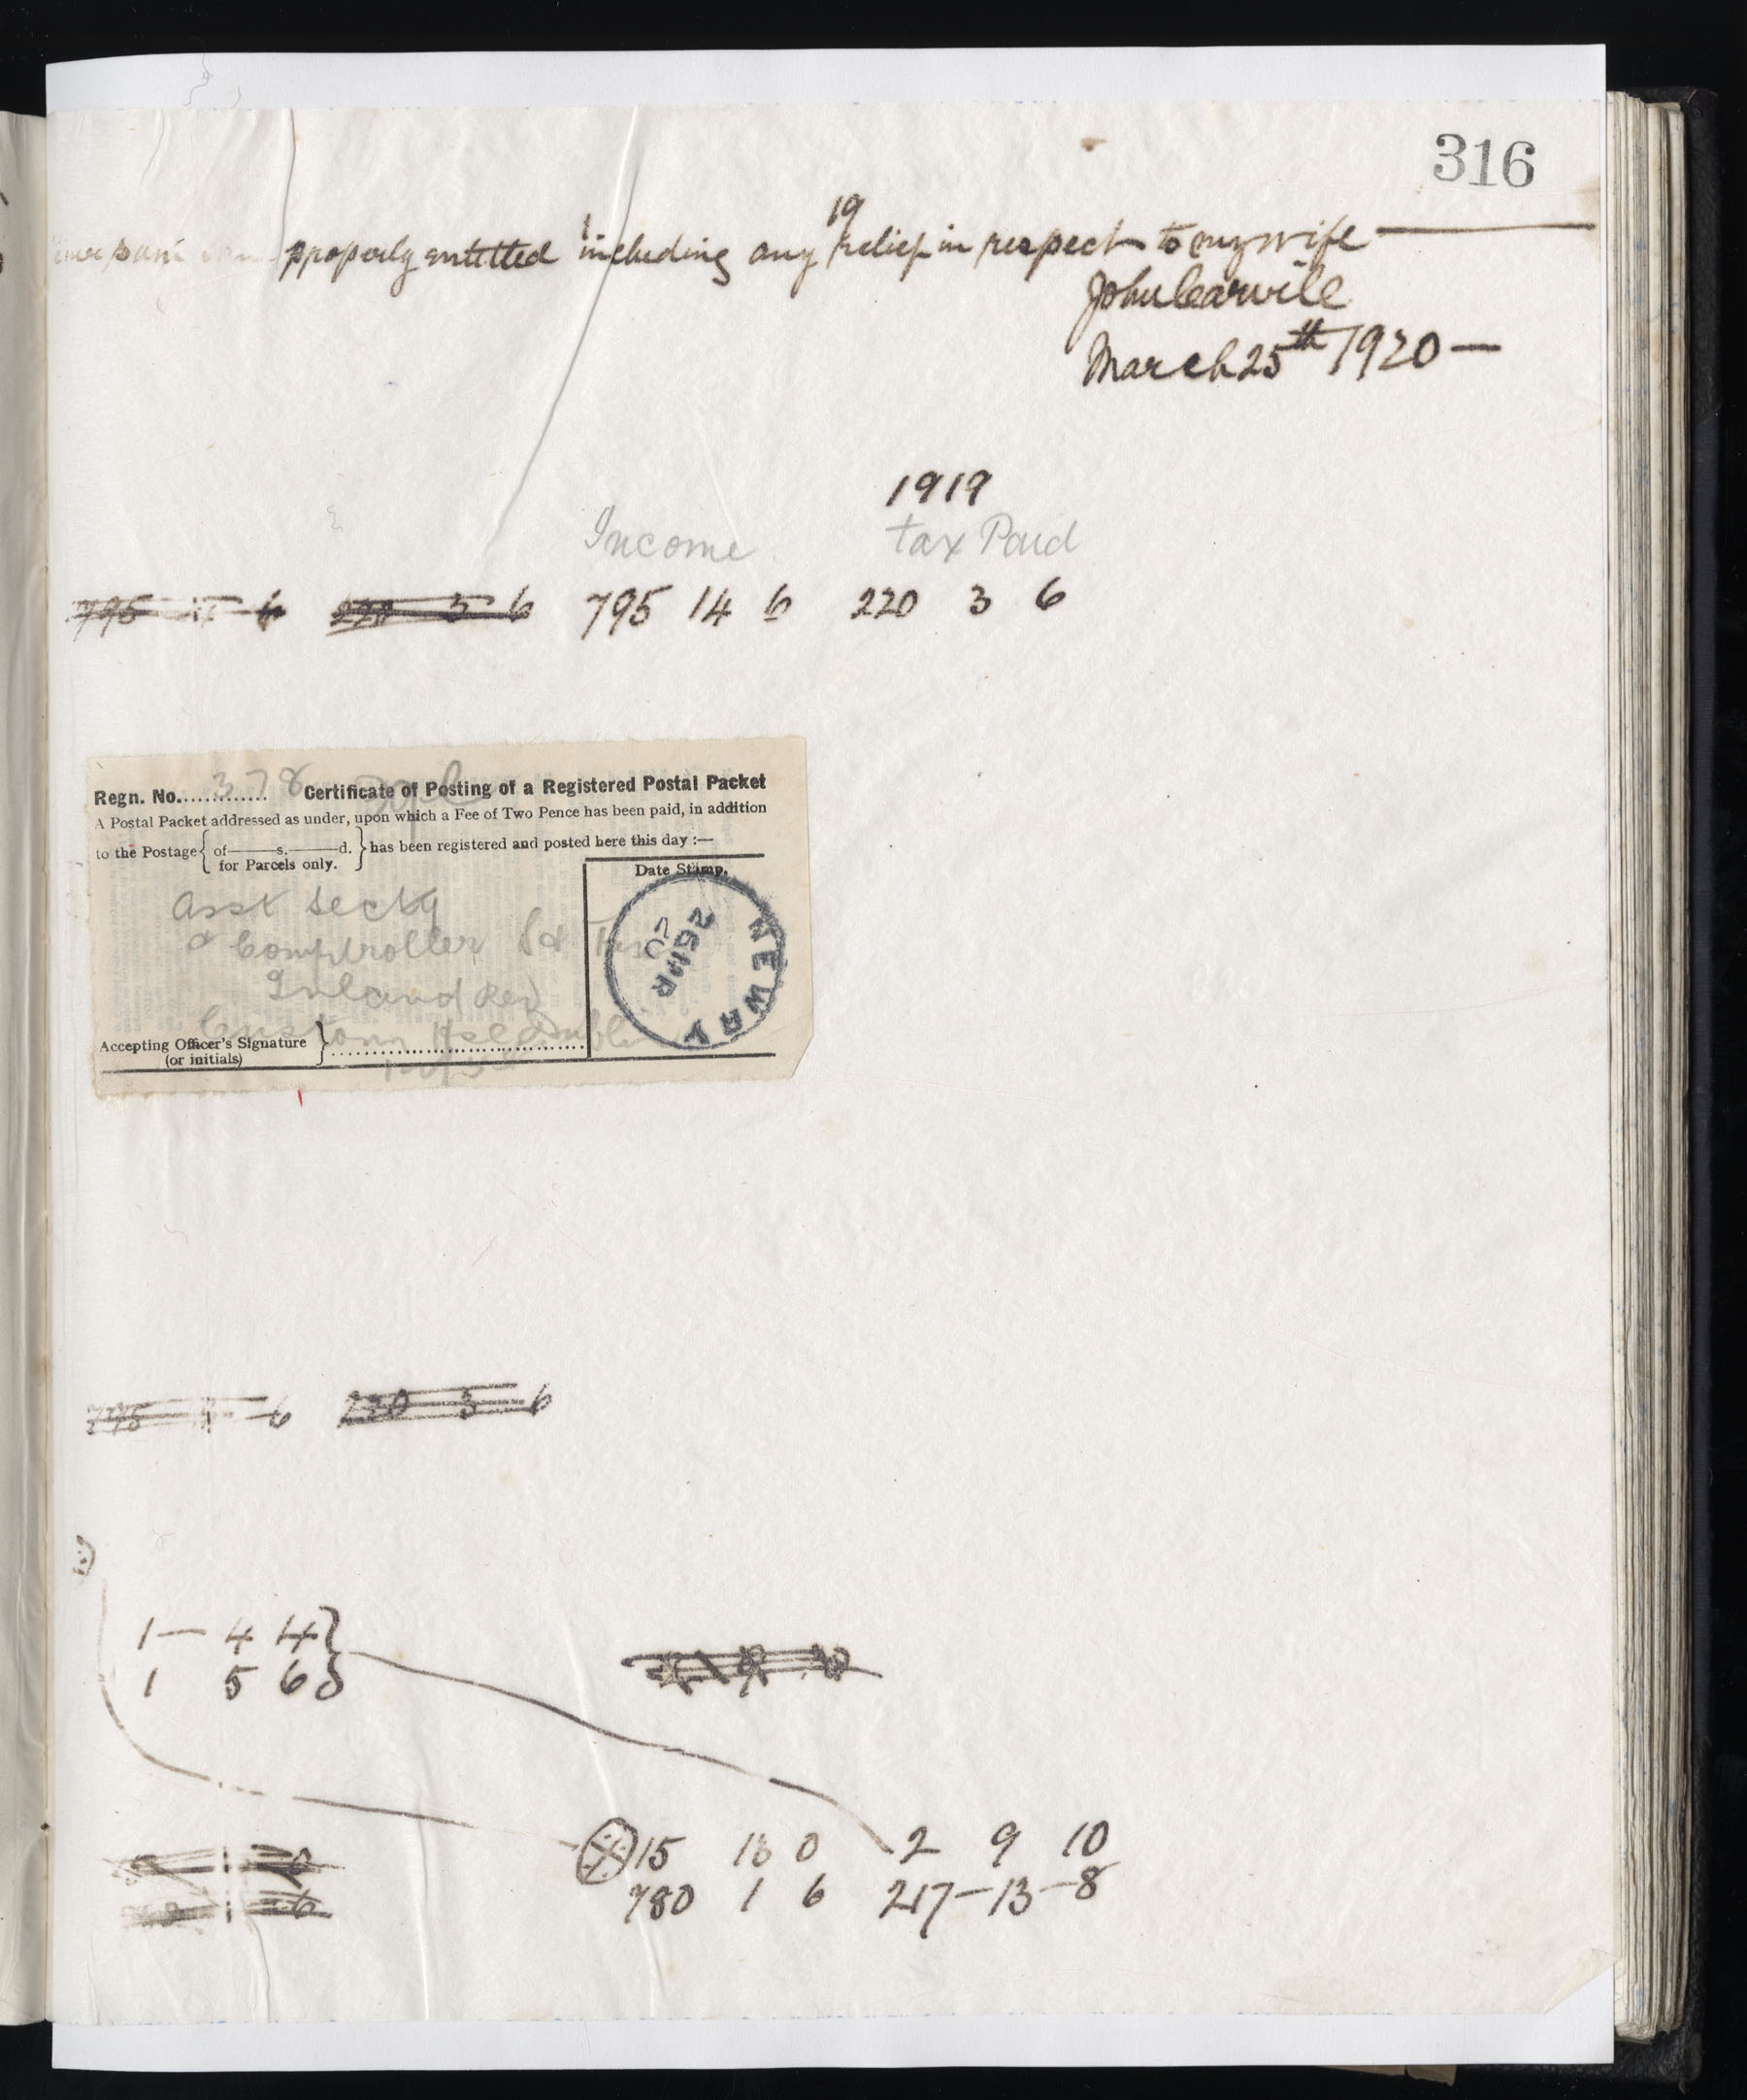 316
19
properly entitled including any relief in respect to my wife
John Carvill
March 25th 1920 —
1919
Income tax Paid
795 6 220 3 6 795 14 6 220 3 6
Regn. No. 378 Certificate of Posting of a Registered Postal Packet
A Postal Packet addressed as under, upon which a Fee of Two Pence has been paid, in addition
to the Postage { of — s. — d. for Parcels only. } has been registered and posted here this day :—
Date Stamp.
NEWRY
26 MR
20
Asst Secty
& Comptroller
Inland Rev
Custom Hse Dublin
Accepting Officer's Signature
(or initials)
795 6 220 3 6
1 — 4 4
1 5 6
15 13 0 2 9 10
780 1 6 217 — 13 — 8